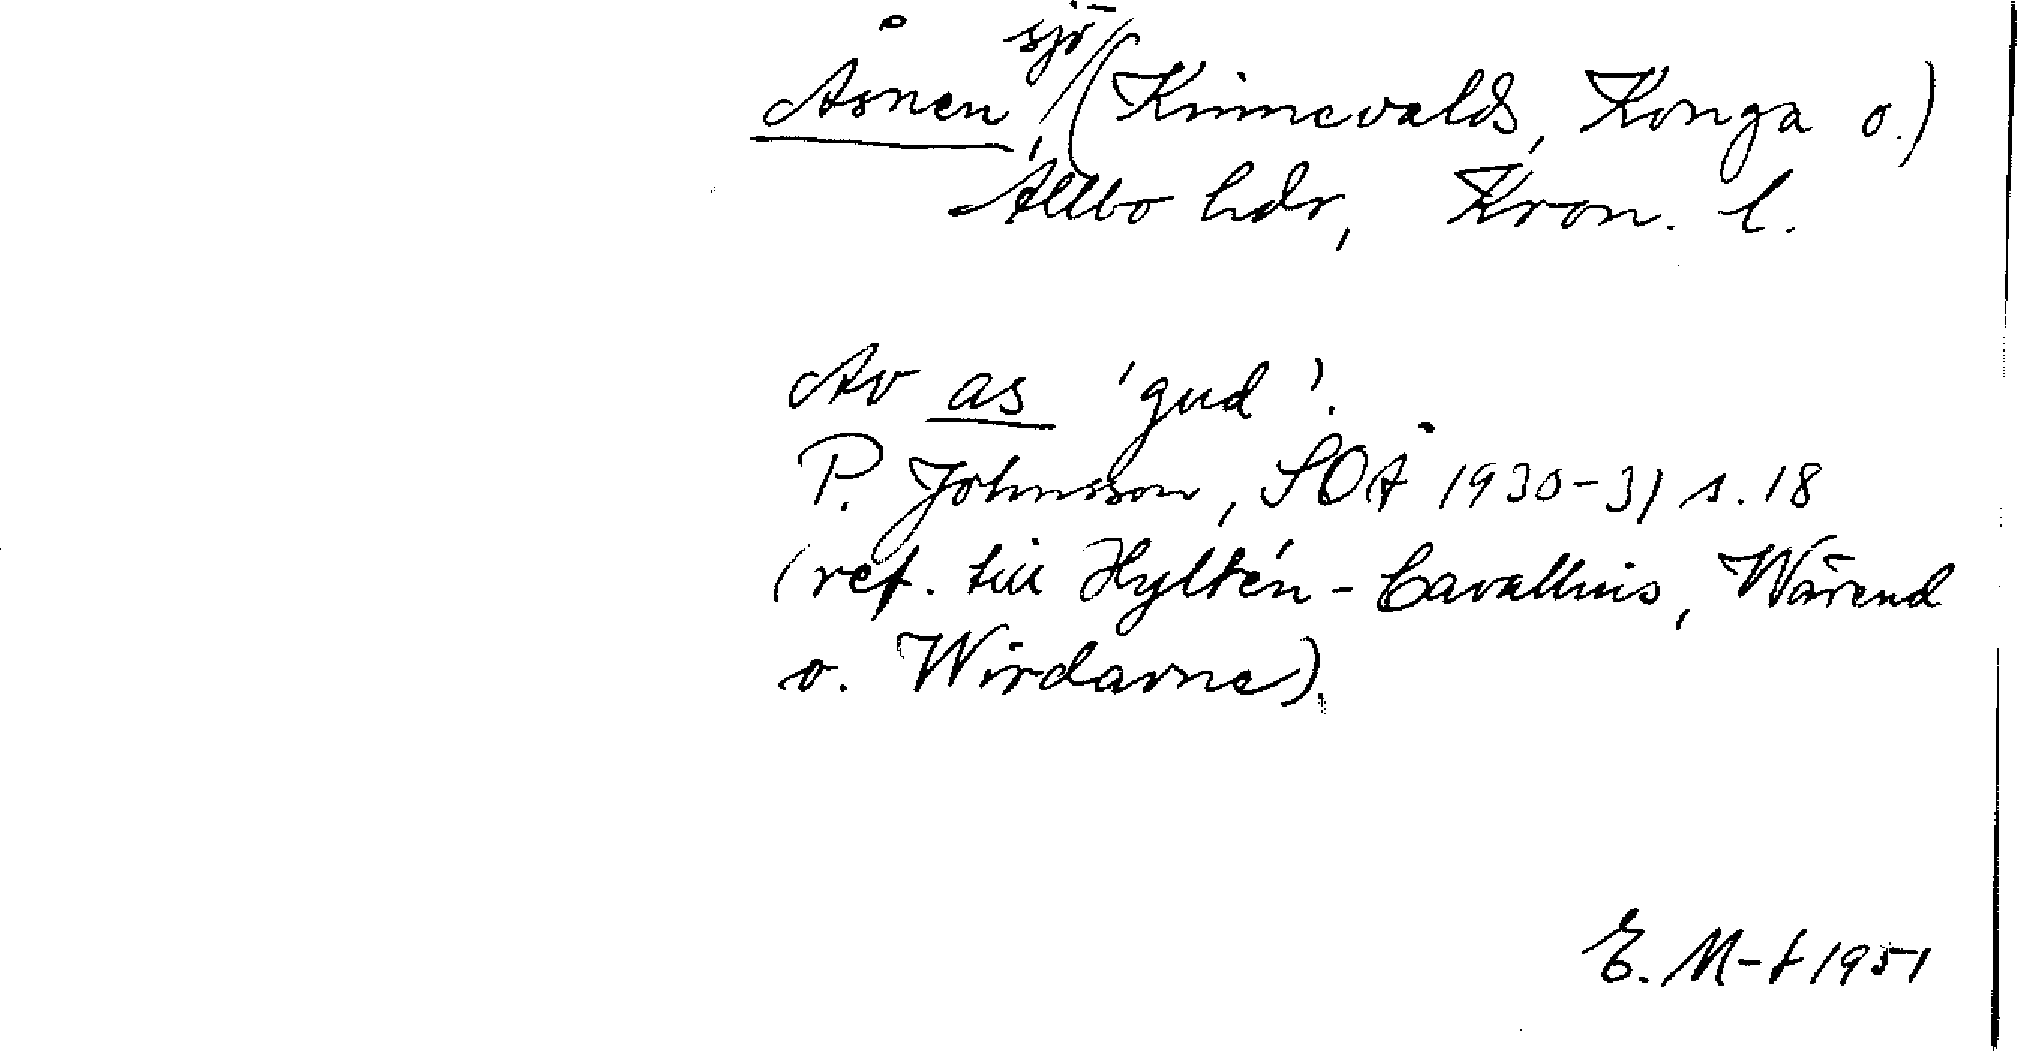 Åsnen, sjö (Kinnevalds, Konga o.)
Allbo hdr, Kron. l.
Av as 'gud'.
P. Johnsson, SOÅ 1930-31 s. 18
(ref. till Hyltén-Cavallius, Wärend
o. Wirdarne).
E. M-t 1951